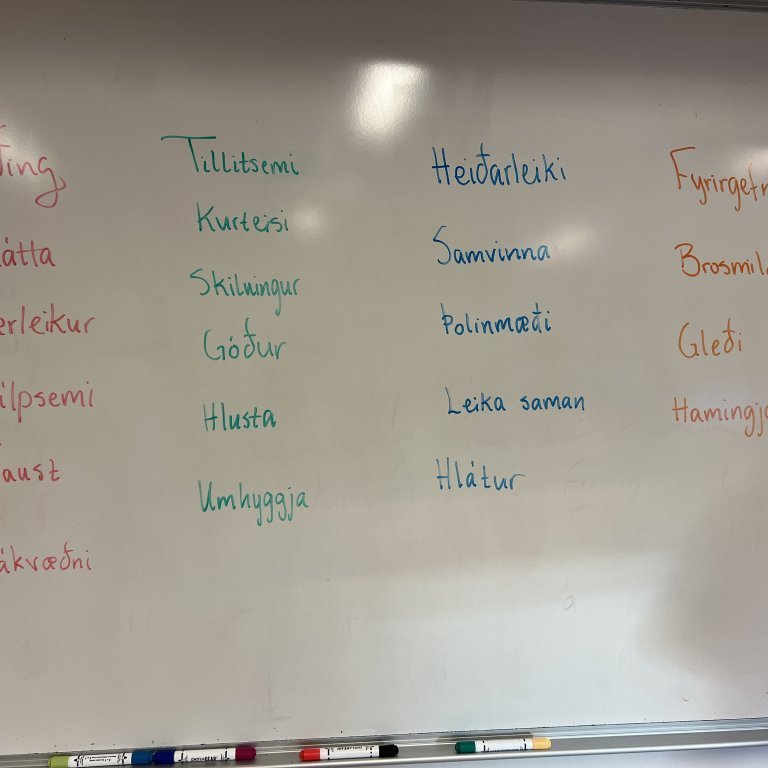 ðing
átta
erleikur
álpsemi
aust
ákvæðni
Tillitsemi
Kurteisi
Skilningur
Góður
Hlusta
Umhyggja
Heiðarleiki
Samvinna
Þolinmæði
Leika saman
Hlátur
Fyrirgefn
Brosmil
Gleði
Hamingja